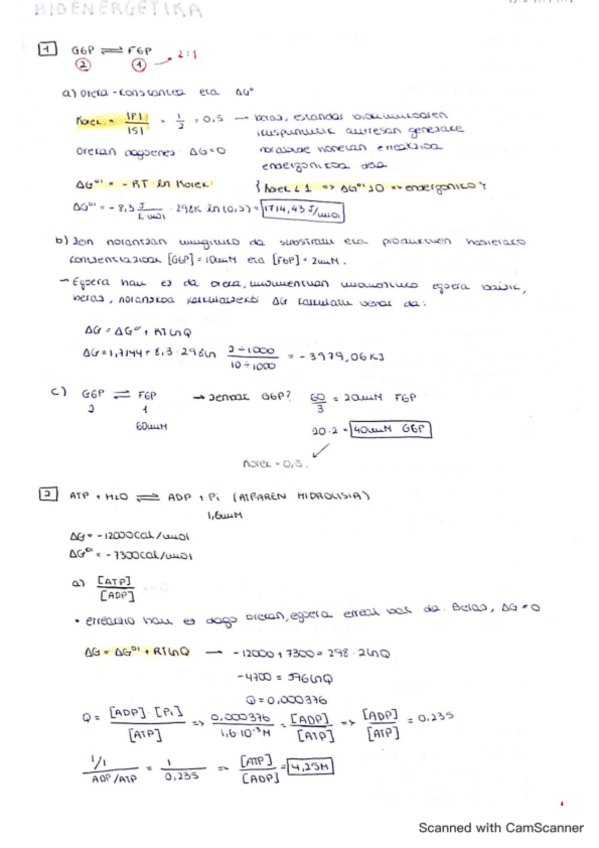 BIOENERGETIKA
1 G6P ⇌ F6P
2 1 → 2:1
a) Oreka-Konstantea eta ΔG°
Korek. = |P| / |S| = 1/2 = 0,5 → beraz, estandar biokimikoaren
norabide honetan erreakzioa
orekan dagoenez ΔG=0
endergonikoa da
ΔG°' = - RT ln Korek
{ Korek < 1 => ΔG°' > 0 => endergonikoa }
ΔG°' = - 8,3 J/K mol · 298K ln(0,5) = 1714,43 J/mol
b) Zein norantzan mugituko da substratu eta produktuen hasierako
kontzentrazioak [G6P] = 10mM eta [F6P] = 2mM.
→ Egoera hau ez da oreka, momentuan egoera baizik,
beraz, norantza kalkulatzeko ΔG calculatu behar da:
ΔG = ΔG°' + RT ln Q
ΔG = 1,7144 + 8,3 · 298 ln 2÷1000 / 10÷1000 = - 3979,06 KJ
c) G6P ⇌ F6P → zenbat G6P? 60/3 = 20mM F6P
2 1
60mM 20·2 = 40mM G6P
Korek = 0,5.
2 ATP + H2O ⇌ ADP + Pi (ATPAREN HIDROLISIA)
1,6mM
ΔG = -12000 cal/mol
ΔG°' = - 7300 cal/mol
a) [ATP] / [ADP]
• erreakzio hau ez dago orekan, egoera erreal bat da. Beraz, ΔG ≠ 0
ΔG = ΔG°' + RT ln Q → -12000 + 7300 = 298 · 2 ln Q
-4700 = 596 ln Q
Q = 0,000376
Q = [ADP]·[Pi] / [ATP] => 0,000376 / 1,6·10⁻³M = [ADP] / [ATP] => [ADP] / [ATP] = 0,235
1/1 / ADP/ATP = 1 / 0,235 => [ATP] / [ADP] = 4,25M
Scanned with CamScanner